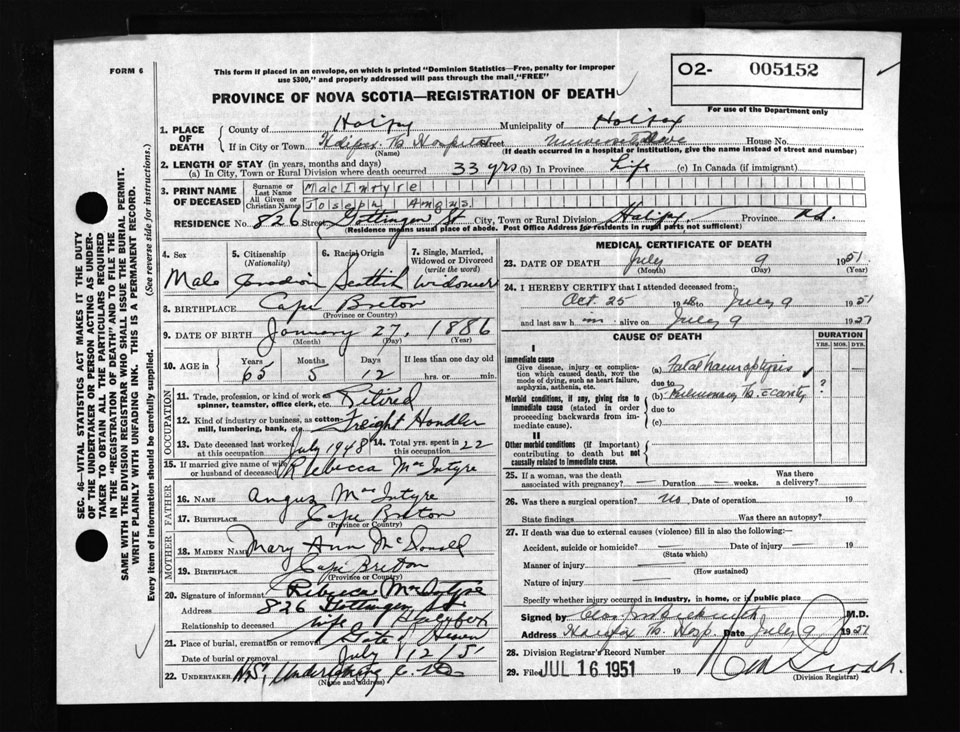 FORM 6
This form if placed in an envelope, on which is printed "Dominion Statistics—Free, penalty for improper
use $300," and properly addressed will pass through the mail "FREE"
O2- 005152
For use of the Department only
PROVINCE OF NOVA SCOTIA—REGISTRATION OF DEATH
1. PLACE OF DEATH
County of Halifax Municipality of Halifax
If in City or Town Halifax Tb Hospital Street University Ave House No.
(Name) (If death occurred in a hospital or institution, give the name instead of street and number)
2. LENGTH OF STAY (in years, months and days)
(a) In City, Town or Rural Division where death occurred 33 yrs (b) In Province Life (c) In Canada (if immigrant)
3. PRINT NAME OF DECEASED
Surname or Last Name MacIntyre
All Given or Christian Names Joseph Angus
RESIDENCE No. 826 Street Gottingen St City, Town or Rural Division Halifax Province N.S.
(Residence means usual place of abode. Post Office Address for residents in rural parts not sufficient)
4. Sex Male
5. Citizenship (Nationality) Canadian
6. Racial Origin Scottish
7. Single, Married, Widowed or Divorced (write the word)
8. BIRTHPLACE Cape Breton
(Province or Country)
9. DATE OF BIRTH January 27, 1886
(Month) (Day) (Year)
10. AGE in Years Months Days If less than one day old
65 5 12 hrs. or min.
OCCUPATION
11. Trade, profession, or kind of work as spinner, teamster, office clerk, etc. Retired
12. Kind of industry or business, as cotton mill, lumbering, bank, etc. Freight Handler
13. Date deceased last worked at this occupation July 1948 14. Total yrs. spent in this occupation 22
15. If married give name of wife or husband of deceased Rebecca MacIntyre
FATHER
16. NAME Angus MacIntyre
17. BIRTHPLACE Cape Breton
(Province or Country)
MOTHER
18. MAIDEN NAME Mary Ann McDonald
19. BIRTHPLACE Cape Breton
(Province or Country)
20. Signature of informant Rebecca MacIntyre
Address 826 Gottingen St. Halifax
Relationship to deceased wife
21. Place of burial, cremation or removal Gate of Heaven
Date of burial or removal July 12/51
22. UNDERTAKER N.S. Undertaking Co. Ltd
(Name and address)
MEDICAL CERTIFICATE OF DEATH
23. DATE OF DEATH July 9 1951
(Month) (Day) (Year)
24. I HEREBY CERTIFY that I attended deceased from:
Oct 25 1948 to July 9 1951
and last saw him alive on July 9 1951
CAUSE OF DEATH
DURATION
YRS. MOS. DYS.
I
Immediate cause
Give disease, injury or complication which caused death, NOT the mode of dying, such as heart failure, asphyxia, asthenia, etc.
(a) Fatal haemoptysis
due to ?
Morbid conditions, if any, giving rise to immediate cause (stated in order proceeding backwards from immediate cause).
(b) Pulmonary Tb. c cavity ?
due to
(c)
II
Other morbid conditions (if important) contributing to death but not causally related to immediate cause.
25. If a woman, was the death associated with pregnancy? — Duration — weeks. Was there a delivery?
26. Was there a surgical operation? no Date of operation 19
State findings Was there an autopsy?
27. If death was due to external causes (violence) fill in also the following:
Accident, suicide or homicide? Date of injury 19
(State which)
Manner of injury
(How sustained)
Nature of injury
Specify whether injury occurred in industry, in home, or in public place
Signed by M.D.
Address Halifax Tb. Hosp. Date July 9 1951
28. Division Registrar's Record Number
29. Filed JUL 16 1951 19
(Division Registrar)
SEC. 46—VITAL STATISTICS ACT MAKES IT THE DUTY
OF THE UNDERTAKER OR PERSON ACTING AS UNDERTAKER
TO OBTAIN ALL THE PARTICULARS REQUIRED
IN THE "REGISTRATION OF DEATH" AND TO FILE THE
SAME WITH THE DIVISION REGISTRAR WHO SHALL ISSUE THE BURIAL PERMIT.
WRITE PLAINLY WITH UNFADING INK. THIS IS A PERMANENT RECORD.
Every item of information should be carefully supplied. (See reverse side for instructions.)